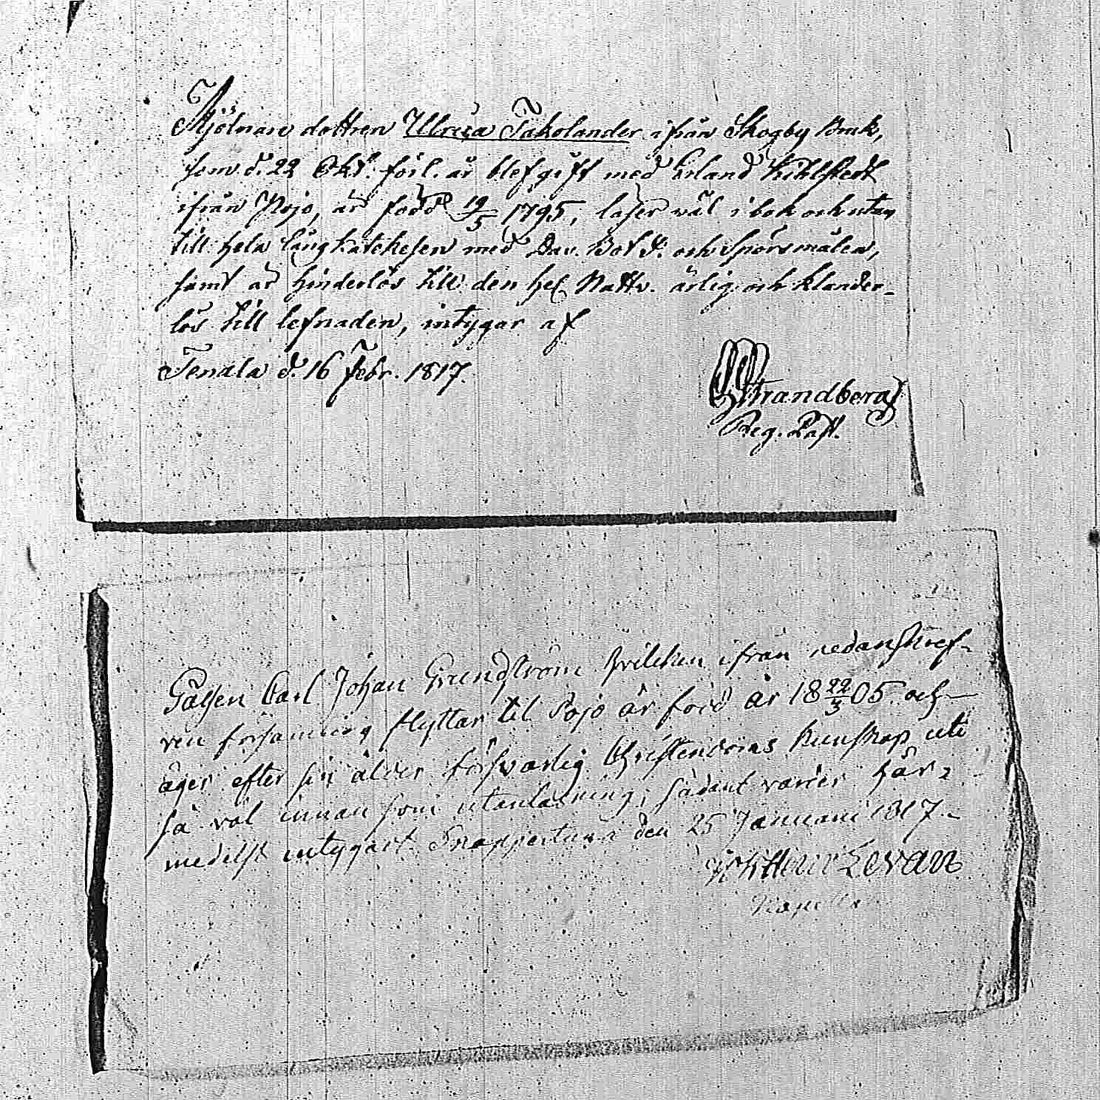 Mjölnare dottren Ulrica Takolander ifrån Skogby Bruk,
som d. 22 Okt. förl. år blef gift med Erland Kihlstedt
ifrån Pojo, är född 19/5 1795, läser väl i bok och utan
till hela långkatekesen med Dav. Bot ps. och spörsmålen,
samt är hinderlös till den hel. Nattv. ärlig och klander-
lös till lefnaden, intygar af
Tenala d. 16 Febr. 1817.
Strandberg
Reg. Past.
Gåssen Carl Johan Grundström hvilken ifrån nedanskref-
ven församling flyttar til Pojo är född år 18 22/3 05 och
äger efter sin ålder försvarlig Christendoms kunskap uti
så väl innan som utanläsning; sådant varder här-
medelst intygart Snappertuna den 25 Januarii 1817.
Levan
Kapellan